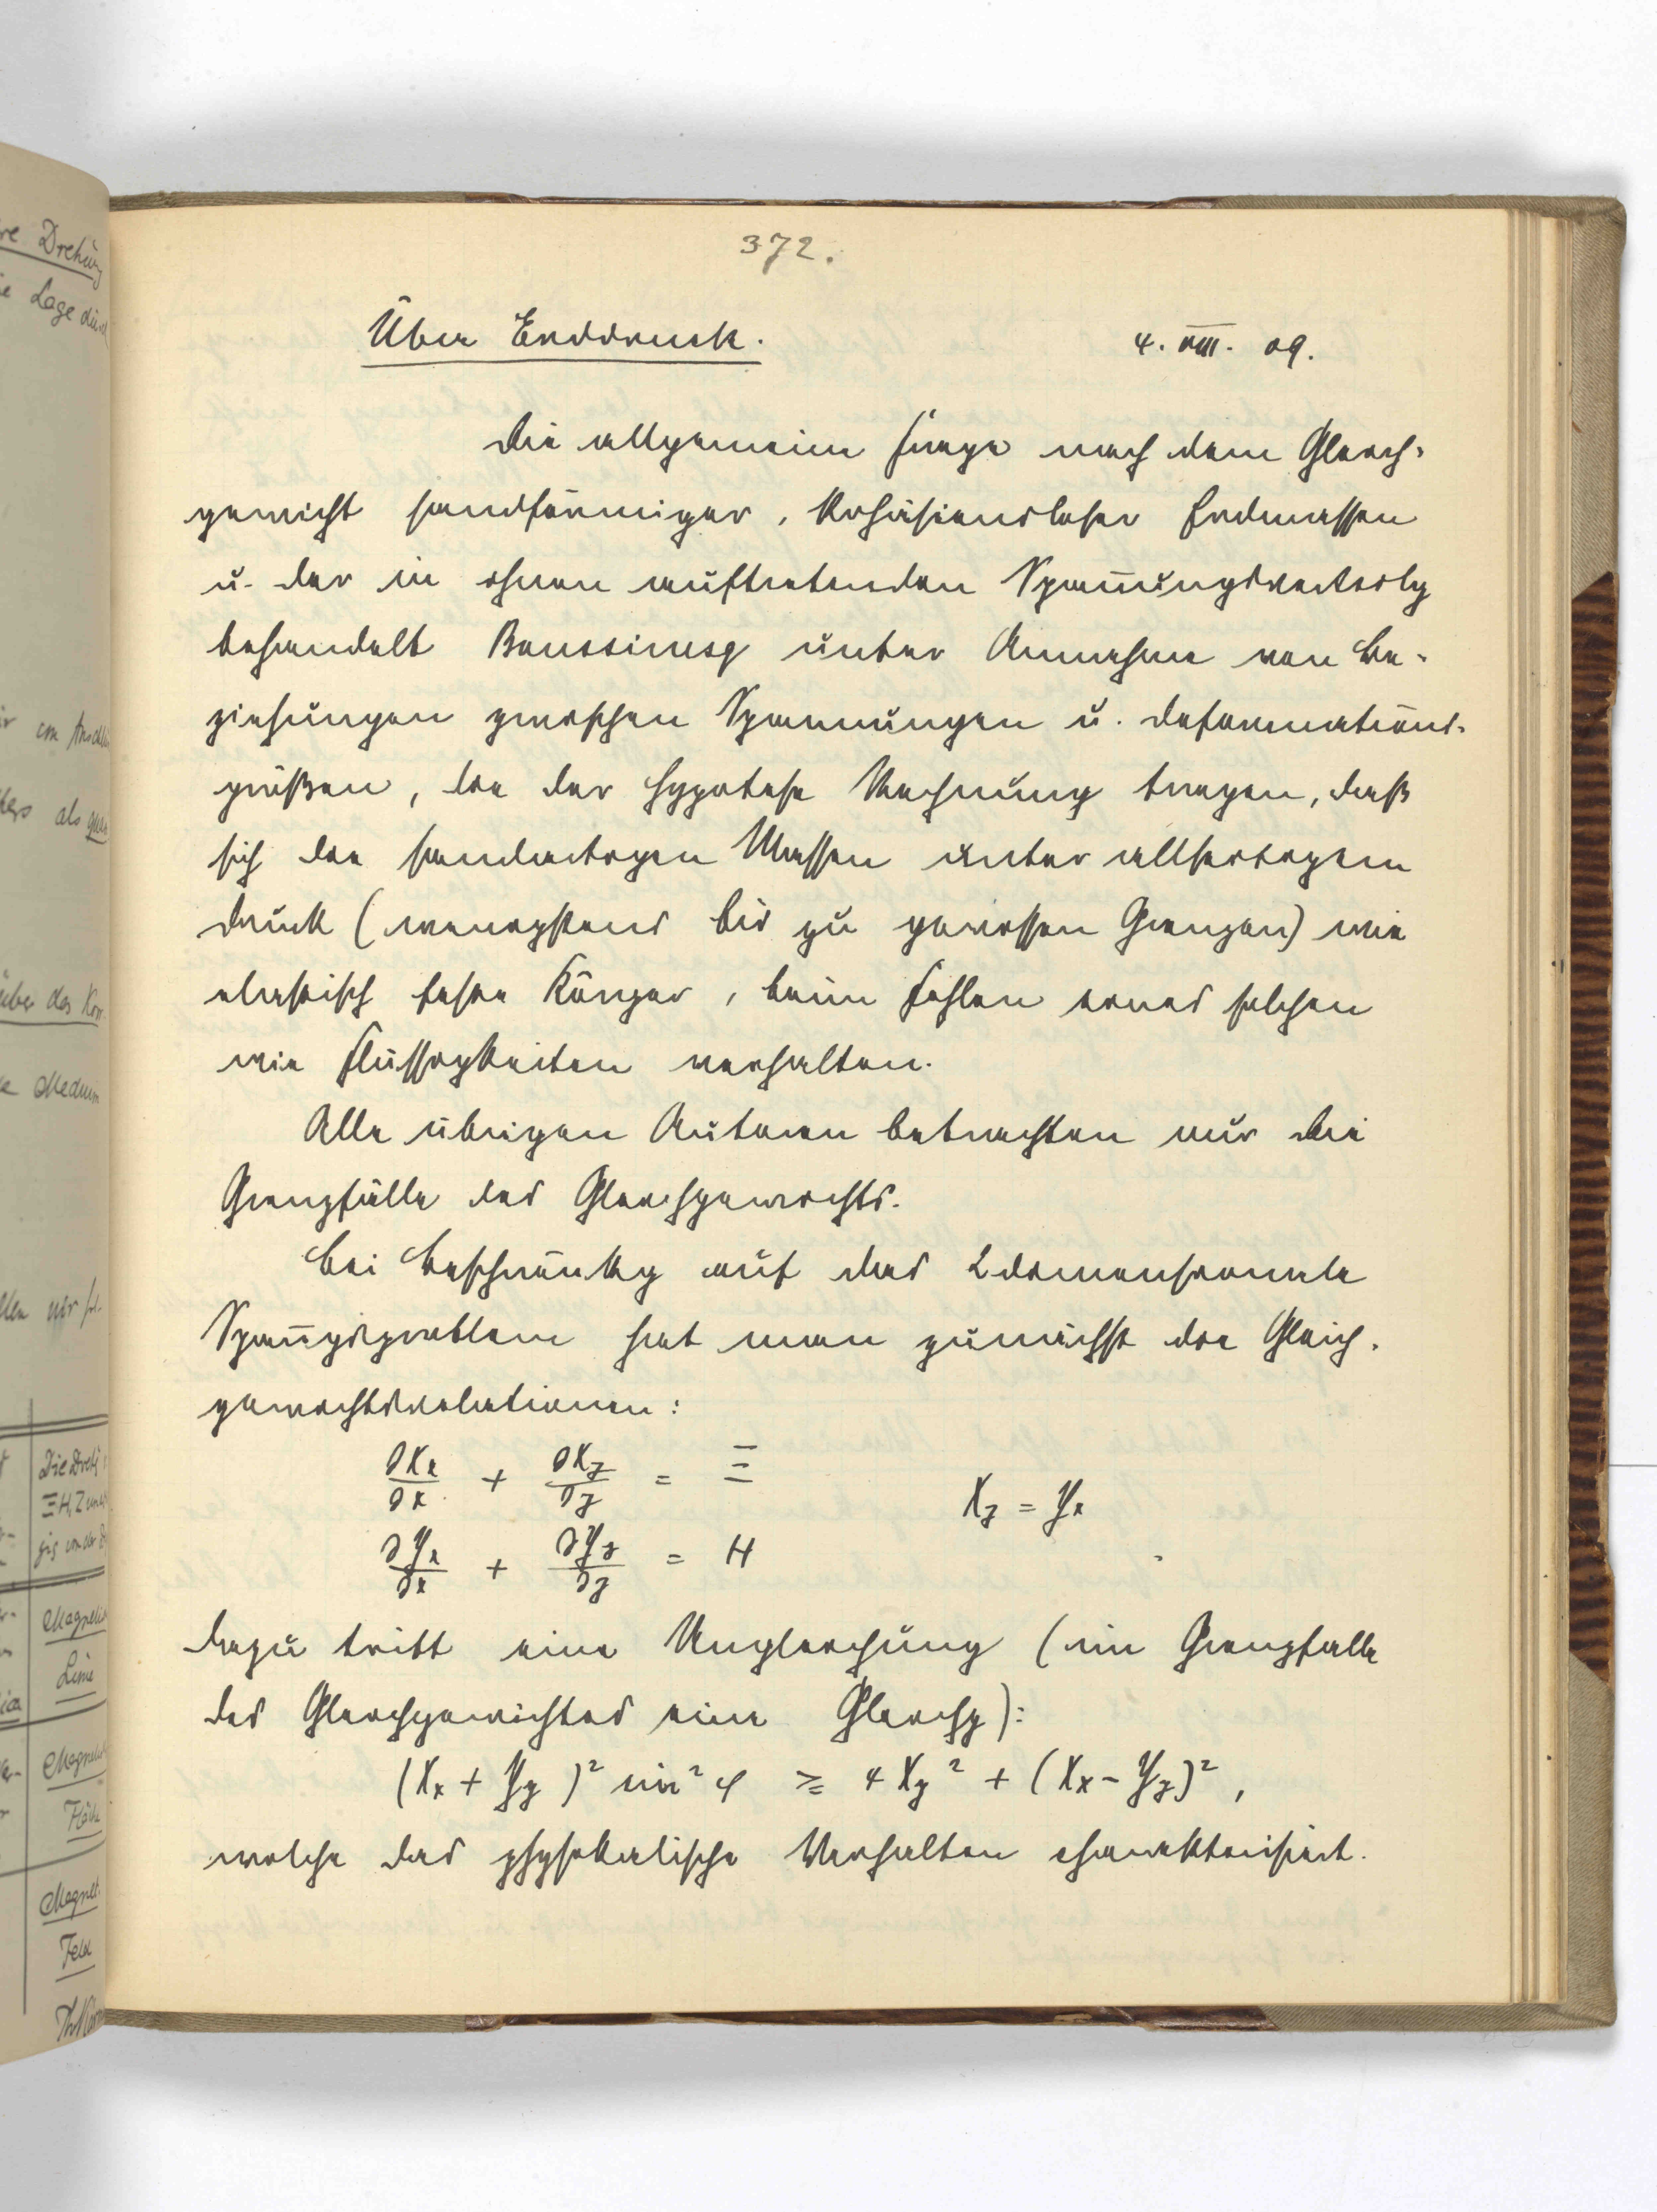 372.
Über Erddruck. 4. VIII. 09.
Die allgemeine Frage nach dem Gleich-
gewicht sandförmiger, kohäsionsloser Erdmassen
u. der in ihnen auftretenden Span̄ungsverteilg
behandelt Boussinesq unter Annahme von Be-
ziehungen zwischen Spannungen u. Deformations-
größen, die der Hypotese Rechnung tragen, daß
sich die sandartigen Massen unter allseitigem
Druck (wenigstens bis zu gewissen Grenzen) wie
elastisch feste Körper, beim Fehlen eines solchen
wie Flüssigkeiten verhalten.
Alle übrigen Autoren betrachten nur die
Grenzfälle des Gleichgewichts.
Bei Beschränkg auf das 2dimensionale
Span̄gsproblem hat man zunächst die Gleich-
gewichtsrelationen:
∂Xx/∂x + ∂Xy/∂y = Ξ Xy = Yx
∂Yx/∂x + ∂Yy/∂y = H
Dazu tritt eine Ungleichung (im Grenzfalle
des Gleichgewichtes eine Gleichg):
(Xx + Yy)² sin² φ ≥ 4 Xy² + (Xx − Yy)²,
welche das physikalische Verhalten charakterisiert.
re Drehung
e Lage
als
über das
Medium
Magnet.
Feld